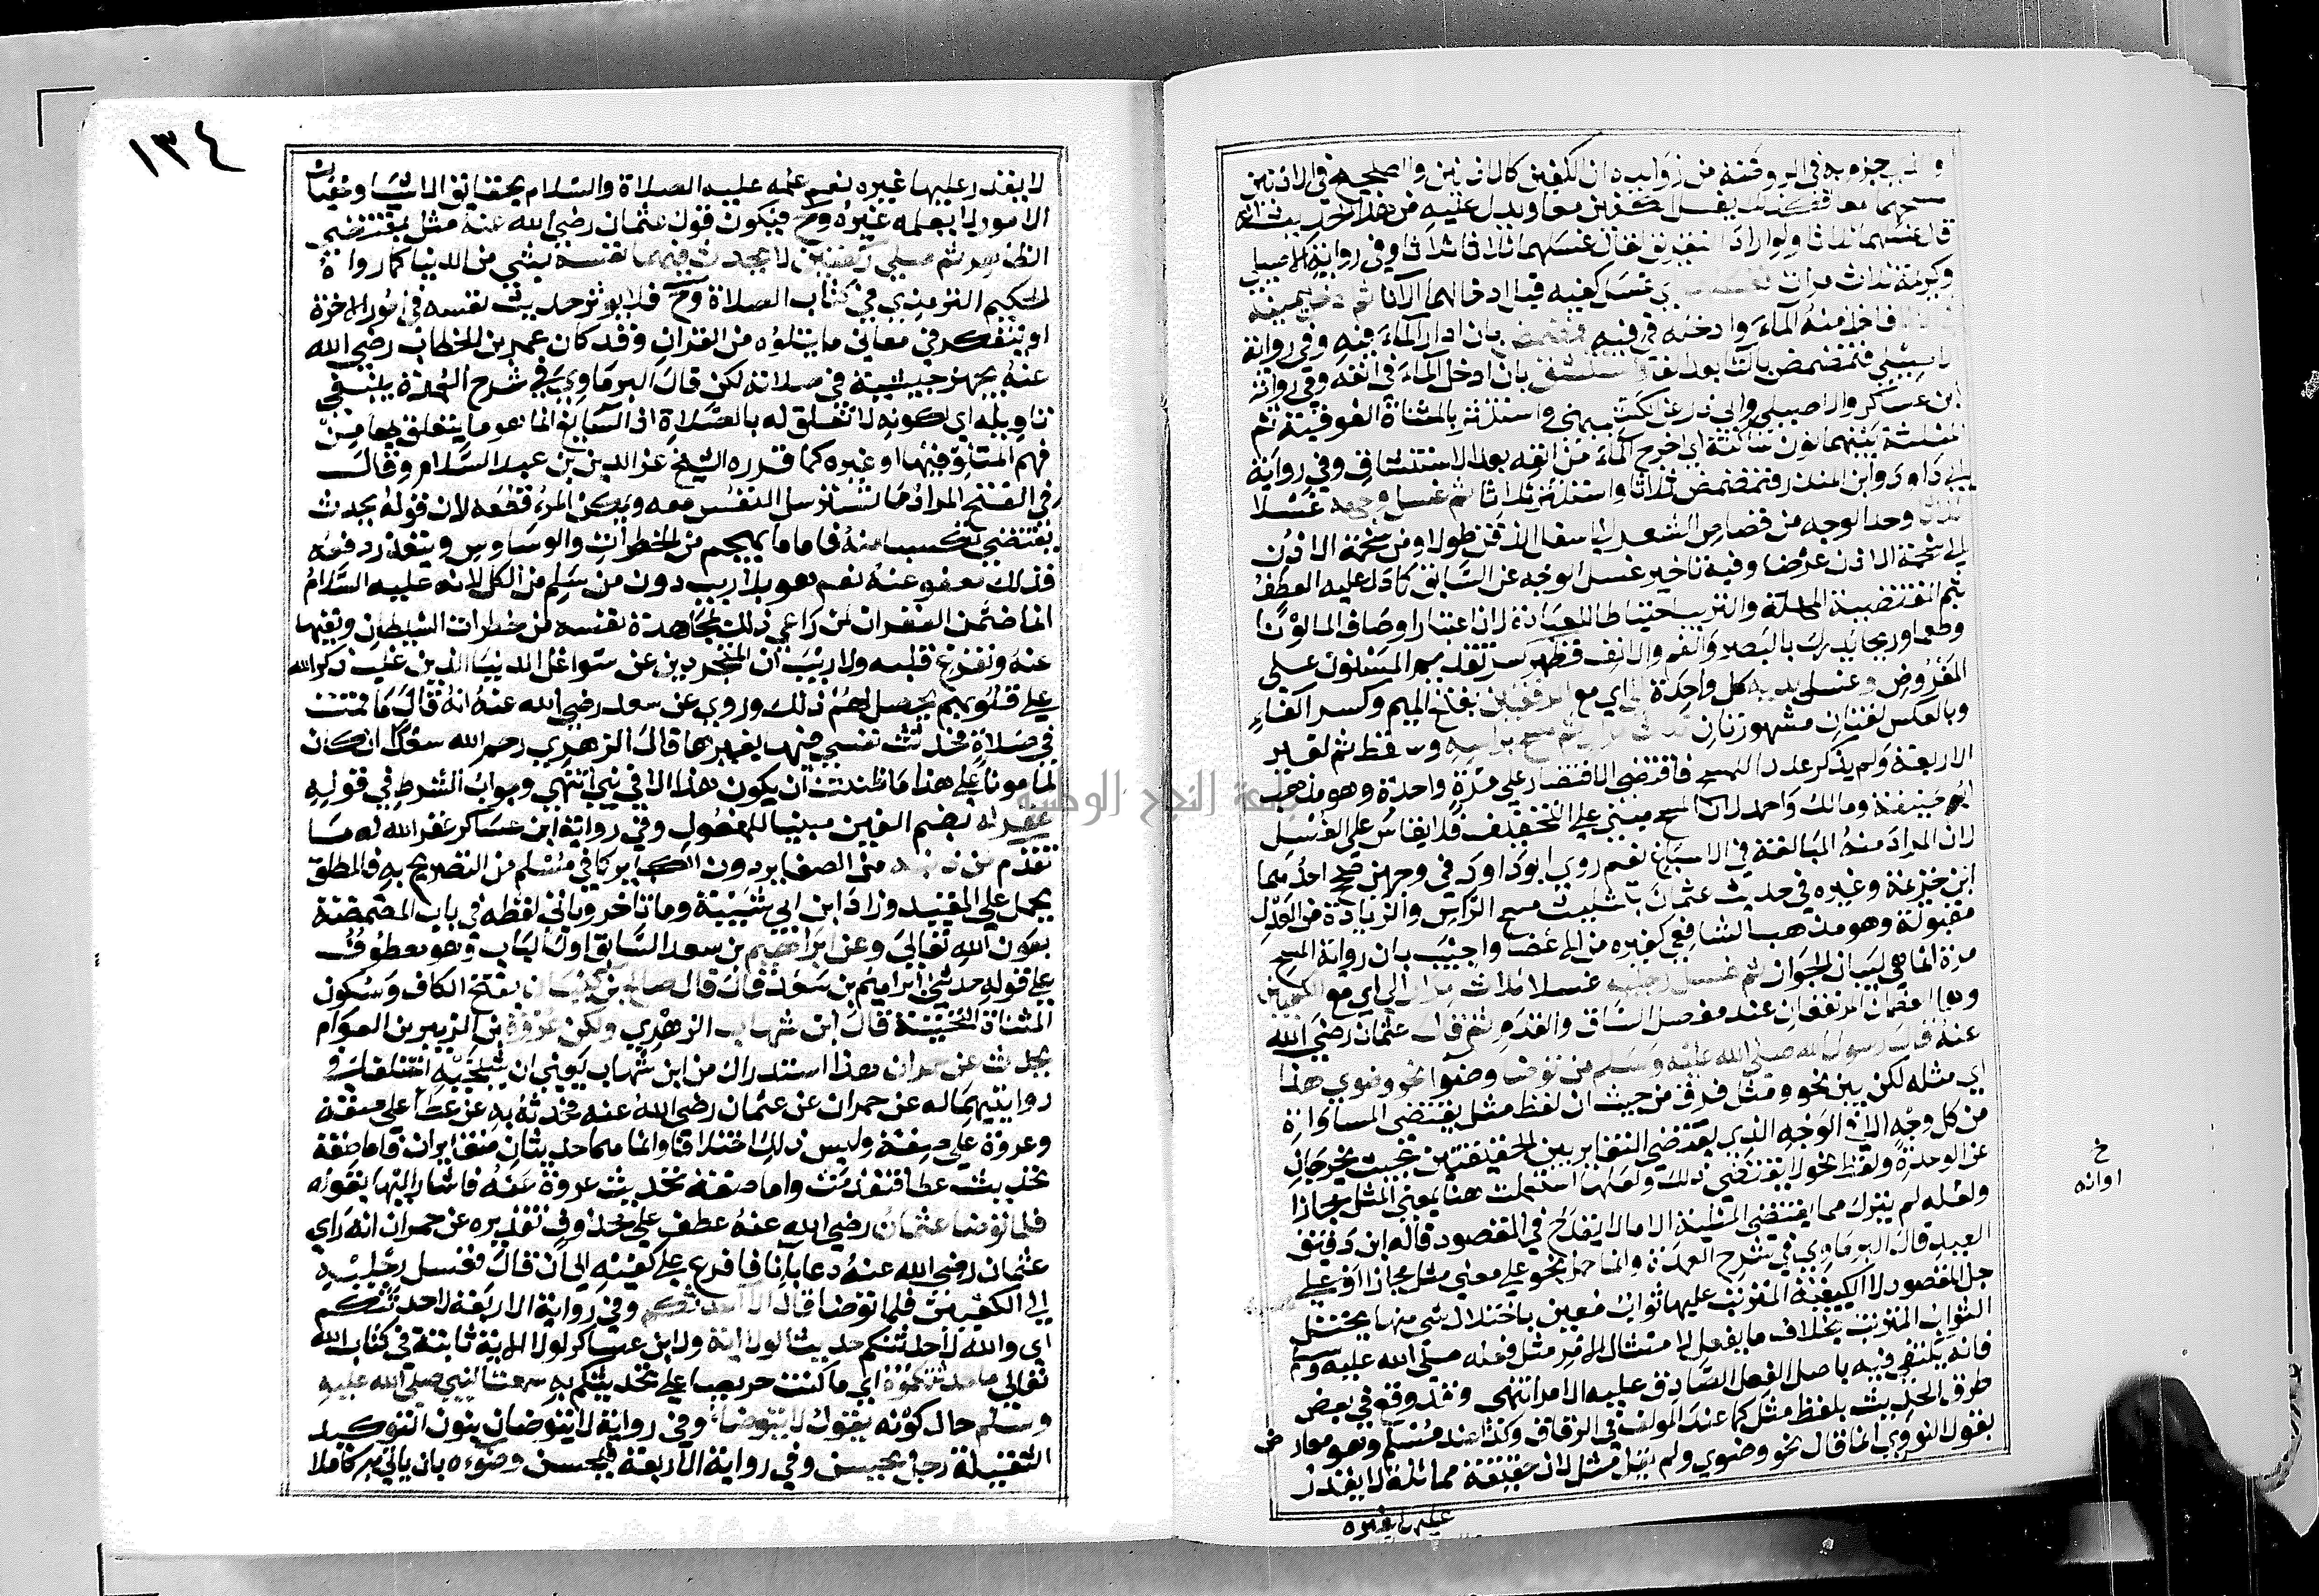 والذي جزم به في الروضة من زوايده ان الكفين كالاذنين والصحيح في الاذنين
مسحهما معا فكذلك يغسل الكفين معا ويدل عليه من هذا الحديث انه
قال غسلهما ثلاثا ولو اراد التفريق لقال غسلهما ثلاثا ثلاثا وفي رواية الاصيلي
وكريمة ثلاث مرات اي غسل كفيه قبل ادخالهما الاناء ثم ادخل يمينه
فاخذ منه الماء وادخله في فيه فمضمض بان ادار الماء فيه وفي رواية
للاصيلي فتمضمض بالتا بعد الفا واستنشق بان ادخل الماء في انفه وفي رواية
ابن عساكر والاصيلي وابي ذر عن الكشميهني واستنثر بالمثناة الفوقية ثم
المثلثة بينهما نون ساكنة اي اخرج الماء من انفه بعد الاستنشاق وفي رواية
ابي داود وابن المنذر فتمضمض ثلاثا واستنثر ثلاثا ثم غسل وجهه غسلا
ثلاثا وحد الوجه من قصاص الشعر الى اسفل الذقن طولا ومن شحمة الاذن
الى شحمة الاذن عرضا وفيه تاخير غسل الوجه عن السابق كما دل عليه العطف
بثم المقتضية المهلة والترتيب احتياطا للعبادة لان اعتبار اوصاف الما لونا
وطعما وريحا يدرك بالبصر والفم والانف فظهر سر تقديم المسنون على
المفروض وغسل يديه كل واحدة الى اي مع المرفقين بفتح الميم وكسر الفاء
وبالعكس لغتان مشهورتان ثلاث مرار ثم مسح براسه وسقط ثم لغير
الاربعة ولم يذكر عددا للمسح فاقتضى الاقتصار على مرة واحدة وهو مذهب
ابو حنيفة ومالك واحمد لان المسح مبني على التخفيف فلا يقاس على الغسل
لان المراد منه المبالغة في الاسباغ نعم روى ابو داود في وجهين صحح احدهما
ابن خزيمة وغيره في حديث عثمان تثليث مسح الراس والزيادة من العدل
مقبولة وهو مذهب الشافعي كغيره من الاعضا واجيب بان رواية المسح
مرة انما هي لبيان الجواز ثم غسل رجليه غسلا ثلاث مرار الى اي مع الكعبين
وهما العظمان المرتفعان عند مفصل الساق والقدم ثم قال عثمان رضي الله
عنه قال رسول الله صلى الله عليه وسلم من توضا وضوا نحو وضوي هذا
اي مثله لكن بين نحو ومثل فرق من حيث ان لفظ مثل يقتضي المساواة
من كل وجه الا في الوجه الذي يقتضي التغاير بين الحقيقتين بحيث يخرجان
عن الوحدة ولفظ نحو لا يقتضي ذلك ولعلها استعملت هنا بمعنى المثل مجازا
ولعله لم يترك مما يقتضي المثلية الا ما لا يقدح في المقصود قاله ابن دقيق
العيد قال البرماوي في شرح العمدة وانما حمل نحو على معنى مثل مجازا او على
جل المقصود لان الكيفية المترتب عليها ثواب معين باختلال شي منها يختل
الثواب المترتب بخلاف ما يفعل لامتثال الامر مثل فعله صلى الله عليه وسلم
فانه يكتفى فيه باصل الفعل الصادق عليه الامر انتهى وقد وقع في بعض
طرق الحديث بلفظ مثل كما عند المولف في الرقاق وكذا عند مسلم وهو معارض
بقول النووي انما قال نحو وضوي ولم يقل مثل لان حقيقة مماثلته لا يقدر
عليها غيره
خ
اوانه
١٣٤
لا يقدر عليها غيره نعم علمه عليه الصلاة والسلام بحقايق الاشيا وخفيات
الامور لا يعلمه غيره وح فيكون قول عثمان رضي الله عنه مثل بمقتضى
الظاهر ثم صلى ركعتين لا يحدث فيهما نفسه بشي من الدنيا كما رواه
الحكيم الترمذي في كتاب الصلاة وح فلا يوثر حديث نفسه في امور الاخرة
او يتفكر في معاني ما يتلوه من القران وقد كان عمر بن الخطاب رضي الله
عنه يجهز جيشه في صلاته لكن قال البرماوي في شرح العمدة ينبغي
تاويله اي لكونه لا تعلق له بالصلاة اذ السايغ انما هو ما يتعلق بها من
فهم المتلو فيها او غيره كما قرره الشيخ عز الدين بن عبد السلام وقال
في الفتح المراد ما تسترسل النفس معه ويمكن المرء قطعه لان قوله يحدث
يقتضي تكسبا منه فاما ما يهجم من الخطرات والوساوس ويتعذر دفعه
فذلك معفو عنه نعم هو بلا ريب دون من سلم من الكل لانه عليه السلام
انما ضمن الغفران لمن راعى ذلك بمجاهدة نفسه من خطرات الشيطان ونفيها
عنه وتفرغ قلبه ولا ريب ان المتجردين عن شواغل الدنيا الذين غلب ذكر الله
على قلوبهم يحصل لهم ذلك وروي عن سعد رضي الله عنه انه قال ما قمت
في صلاة فحدثت نفسي فيها بغيرها قال الزهري رحم الله سعدا ان كان
لمامونا على هذا ما ظننت ان يكون هذا الا في نبي انتهى وجواب الشرط في قوله
غفر له بضم الغين مبنيا للمفعول وفي رواية ابن عساكر غفر الله له ما
تقدم من ذنبه من الصغاير دون الكباير كما في مسلم من التصريح به فالمطلق
يحمل على المقيد وزاد ابن ابي شيبة وما تاخر وياتي لفظه في باب المضمضة
بعون الله تعالى وعن ابراهيم بن سعد السابق اول الباب وهو معطوف
على قوله حدثني ابراهيم بن سعد قال قال صالح بن كيسان بفتح الكاف وسكون
المثناة التحتية قال ابن شهاب الزهري ولكن عروة بن الزبير بن العوام
يحدث عن حمران هذا استدراك من ابن شهاب يعني ان شيخيه اختلفا في
روايتيهما له عن حمران عن عثمان رضي الله عنه فحدثه به عن عطا على صفة
وعروة على صفة وليس ذلك اختلافا وانما هما حديثان متغايران فاما صفة
تحديث عطا فتقدمت واما صفة تحديث عروة عنه فاشار اليها بقوله
فلما توضا عثمان رضي الله عنه عطف على محذوف تقديره عن حمران انه راى
عثمان رضي الله عنه دعا باناء فافرغ على كفيه الى ان قال فغسل رجليه
الى الكعبين فلما توضا قال الا احدثكم وفي رواية الاربعة لاحدثنكم
اي والله لاحدثنكم حديثا لولا اية ولابن عساكر لولا الاية ثابتة في كتاب الله
تعالى ما حدثتكموه اي ما كنت حريصا على تحديثكم به سمعت النبي صلى الله عليه
وسلم حال كونه يقول لا يتوضا وفي رواية لا يتوضان بنون التوكيد
الثقيلة رجل يحسن وفي رواية الاربعة فيحسن وضوءه بان ياتي به كاملا